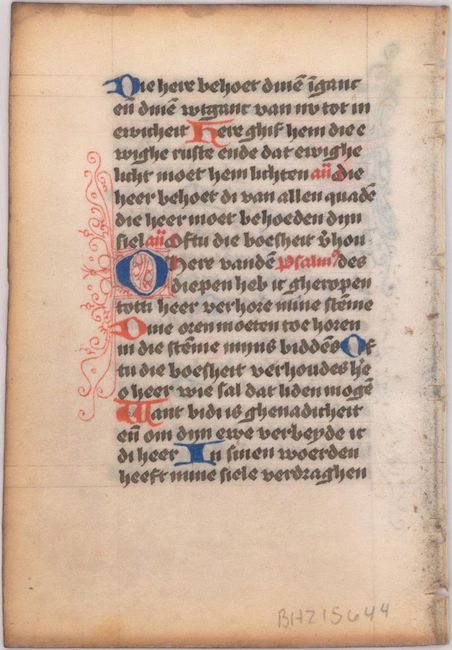 Die here behoet dinē īgant
eñ dinē wtgant van nv tot in
ewicheit Here ghif hem die e
wighe ruste ende dat ewighe
licht moet hem lichten añ die
heer behoet di van allen quadē
die heer moet behoeden dijn
siel añ Oftu die boesheit v̄hou
O here vandē psalm des
diepen heb ic gheropen
totti heer verhore mine stēme
Dine oren moeten toe horen
in die stēme mijns biddēs Of
tu die boesheit verhoudes h̄e
o heer wie sal dat liden mogē
Want bi di is ghenadicheit
eñ om dijn ewe verbeyde ic
di heer In sinen woerden
heeft mine siele verdraghen
BHZ15644